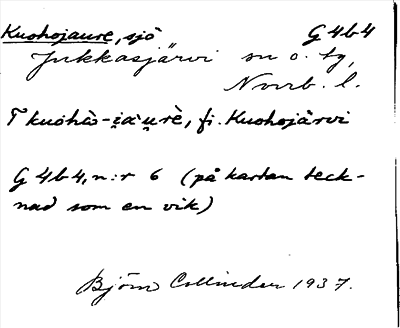 Kuohojaure, sjö G 4b4
Jukkasjärvi sn o. tg,
Norrb. l.
T kuòhàs-i̯a`u̯rè, fi. Kuohojärvi
G 4b4, n:r 6 (på kartan teck-
nad som en vik)
Björn Collinder 1937.